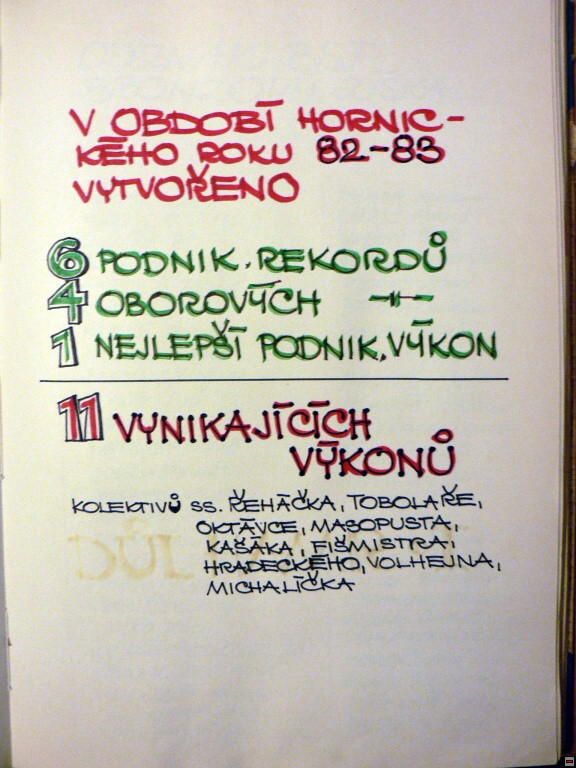 V OBDOBÍ HORNIC-
KÉHO ROKU 82-83
VYTVOŘENO
6 PODNIK. REKORDŮ
4 OBOROVÝCH -"-
1 NEJLEPŠÍ PODNIK. VÝKON
11 VYNIKAJÍCÍCH
VÝKONŮ
KOLEKTIVŮ SS. ŘEHÁČKA, TOBOLAŘE,
OKTÁVCE, MASOPUSTA,
KAŠÁKA, FIŠMISTRA,
HRADECKÉHO, VOLHEJNA,
MICHALÍČKA